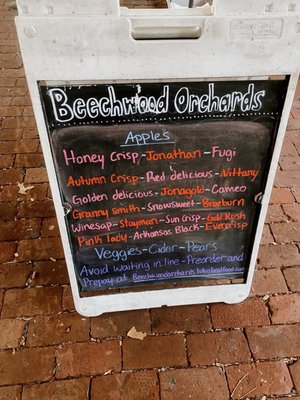 Beechwood Orchards
Apples
Honey Crisp~Jonathan~Fugi
Autumn Crisp~Red delicious~Nittany
Golden delicious~Jonagold~Cameo
Granny Smith~Snowsweet~Braeburn
Winesap~Stayman~Sun crisp~Gold Rush
Pink Lady~Arkansas Black~Evercrisp
Veggies~Cider~Pears
Avoid waiting in line~Preorder and
Prepay at Beechwoodorchards.luluslocalfood.com